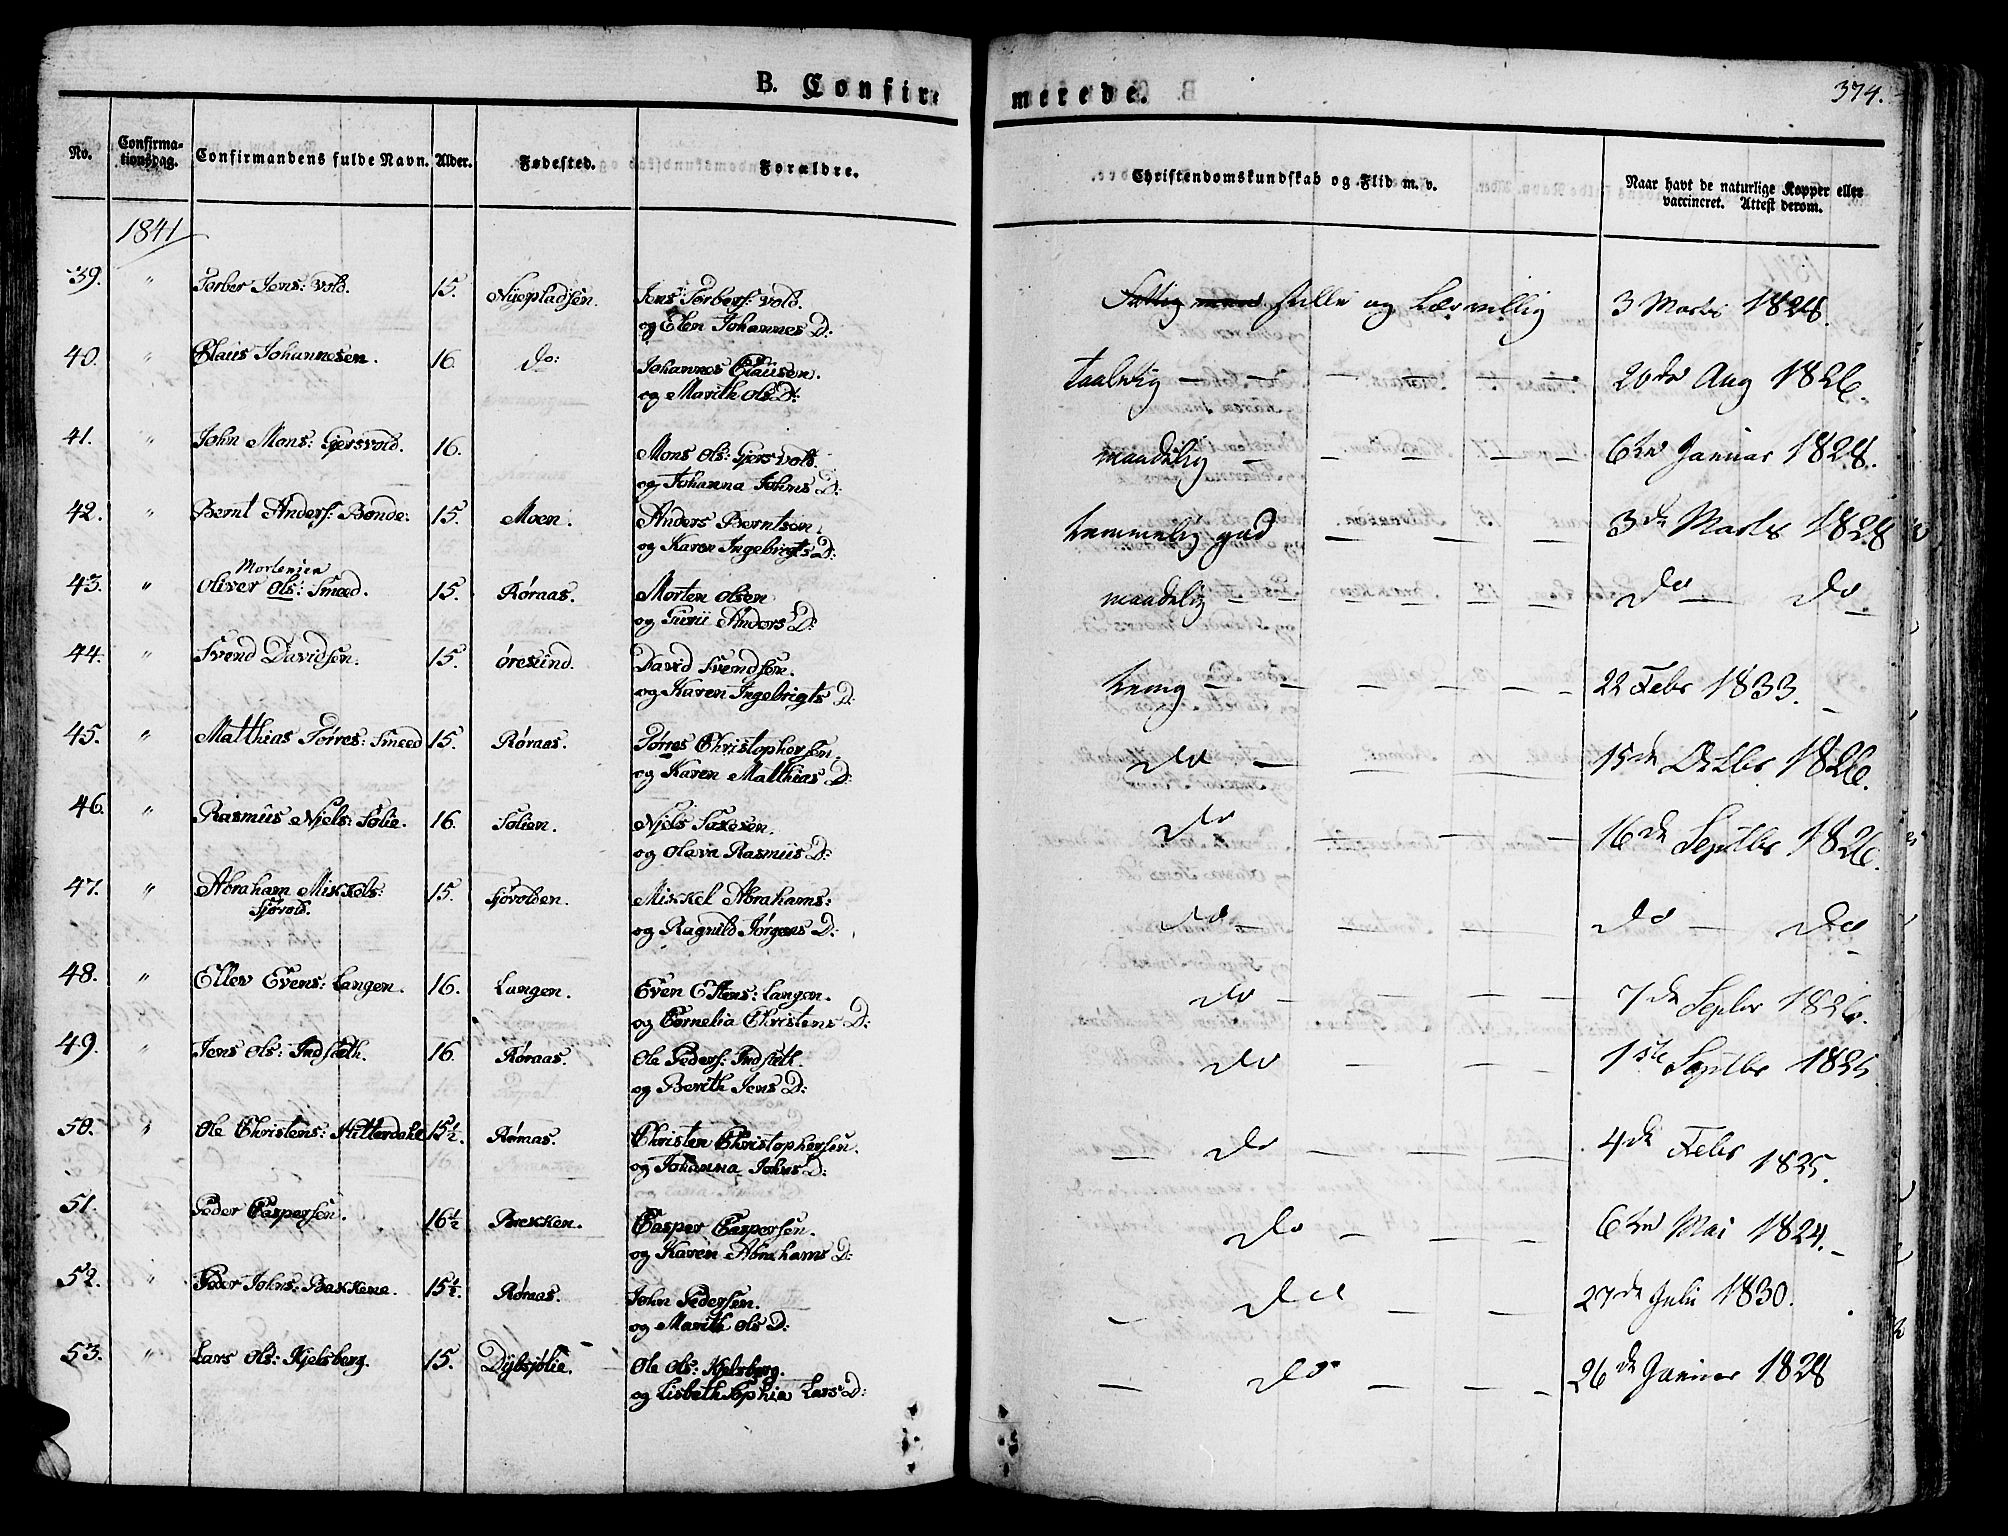 B. Confirmerede.
374.
No. Confirmationsdag. Confirmandens fulde Navn. Alder. Fødested. Forældre. Christendomskundskab og Flid m. v. Naar havt de naturlige Kopper eller vaccineret. Attest derom.
1841
39. " Torber Jens: Vold. 15. Nyepladsen. Jens Torbers: Vold. stille og Lærvillig 3 Marts 1828.
og Elen Johannes D:
40. " Claus Johannesen. 16. do: Johannes Clausen. taalelig — — — — — 20de Aug 1826.
og Marith Ols D:
41. " John Mons: Gjersvold. 16. Mons Ols: Gjersvold. maadelig — — — — — 6te Januar 1828.
og Johanna Johns D:
42. " Bernt Anders: Bonde. 15. Moen. Anders Berntsen temmelig god — — — 3de Marts 1828
og Karen Ingebrigts D:
Mortensen
43. " Oliver Ols: Smeed. 15. Røraas. Morten Olsen maadelig — — — — — do — do
og Gurii Anders D:
44. " Svend Davidsen. 15. Øresund. David Svendsen. — — — — — 22 Febr 1833.
og Karen Ingebrigts D:
45. " Matthias Tørres: Smeed 15. Røraas. Tørres Christophersen. do — — — 15de Octbr 1826.
og Karen Matthias D:
46. " Rasmus Niels: Sølie. 16. Sølien. Njels Saxesen. do — — — 16de Septbr 1826.
og Olava Rasmus D:
47. " Abraham Mikkels: 15. Sjøvolden. Mikkel Abrahams: do — — — — do — do
Sjøvold. og Ragnild Jørgens D:
48. " Ellev Evens: Langen. 16. Langen. Even Ellens: Langen. do — — — — 7de Septbr 1826.
og Cornelia Christens D:
49. " Jens Ols: Indseth. 16. Røraas. Ole Peders: Indseth. do — — — 1ste Septbr 1825
og Berith Jens D:
50. " Ole Christens: Hitterdahl 15½. Røraas. Christen Christophersen. — do — — — 4de Febr 1825.
og Johanna Johns D:
51. " Peder Caspersen. 16½ Brekken. Casper Caspersen. do — — — 6te Mai 1824.
og Karen Abrahams D:
52. " Peder Johns: Bakkene. 15½. Røraas. John Pedersen. — do — — 27de Julii 1830.
og Marith Ols D:
53. " Lars Ols: Kjelsberg. 15. Dybsjølie. Ole Ols: Kjelsberg. — do — — — 26de Januar 1828
og Lisbeth Sophia Lars D: